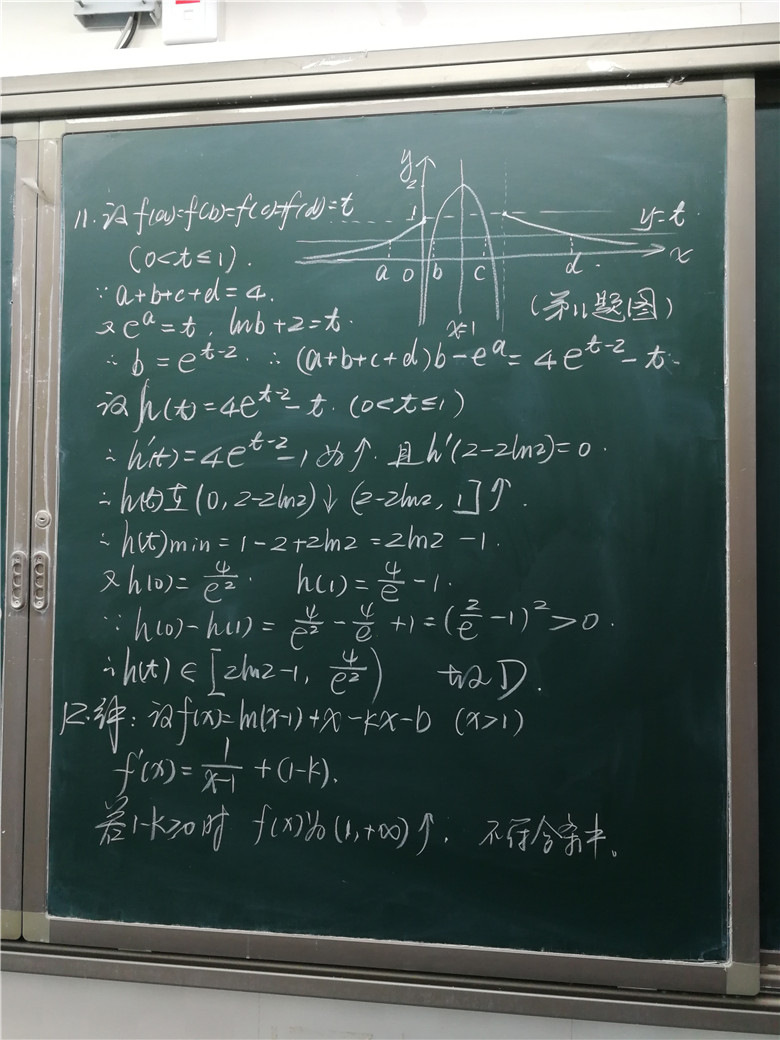 11. 设f(a)=f(b)=f(c)=f(d)=t
(0<t≤1).
∵a+b+c+d=4.
又e^a=t, lnb+2=t.
∴b=e^{t-2}. ∴(a+b+c+d)b-e^a=4e^{t-2}-t.
设h(t)=4e^{t-2}-t. (0<t≤1)
∴h'(t)=4e^{t-2}-1为↑. 且h'(2-2ln2)=0.
∴h(t)在(0, 2-2ln2)↓ (2-2ln2, 1]↑.
∴h(t)min=1-2+2ln2=2ln2-1.
又h(0)=4/e². h(1)=4/e-1.
∵h(0)-h(1)=4/e²-4/e+1=(2/e-1)²>0.
∴h(t)∈[2ln2-1, 4/e²) 故选D.
12.解: 设f(x)=ln(x-1)+x-kx-b (x>1)
f'(x)=1/(x-1)+(1-k).
若1-k≥0时 f(x)为(1,+∞)↑. 不符合条件。
y
2
1
y=t
x
a
0
b
c
d
x=1
(第11题图)